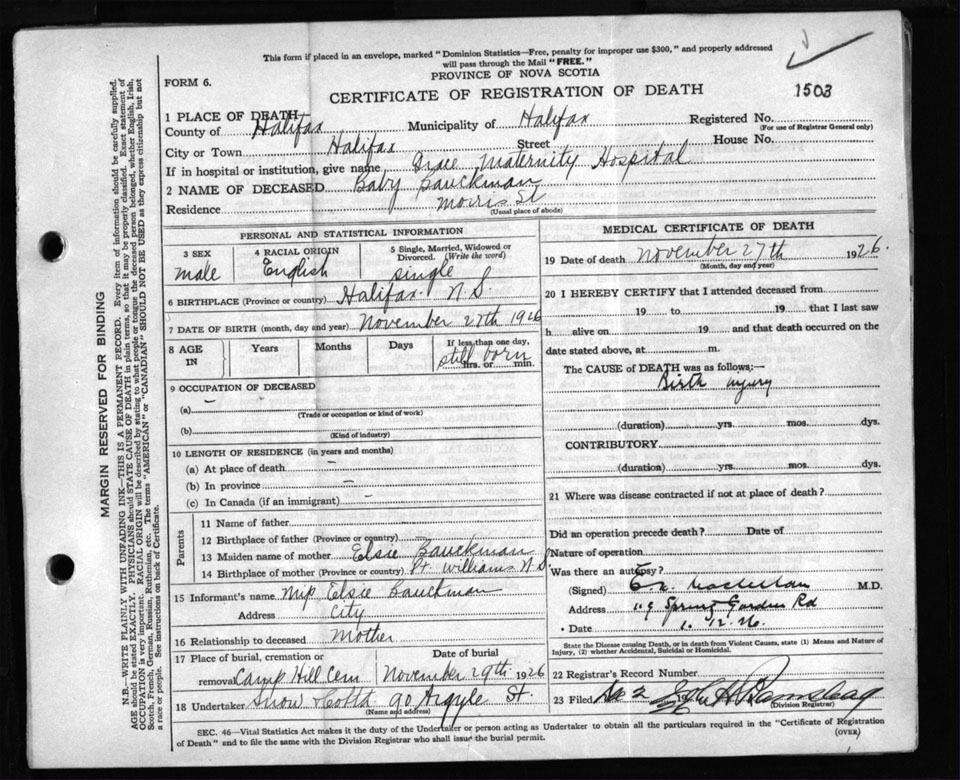 This form if placed in an envelope, marked "Dominion Statistics—Free, penalty for improper use $300," and properly addressed
will pass through the Mail "FREE."
FORM 6.
PROVINCE OF NOVA SCOTIA
CERTIFICATE OF REGISTRATION OF DEATH
1503
1 PLACE OF DEATH
County of Halifax Municipality of Halifax Registered No.
(For use of Registrar General only)
City or Town Halifax Street House No.
If in hospital or institution, give name Grace Maternity Hospital
2 NAME OF DECEASED Baby Bauckman
Residence Morris St
(Usual place of abode)
PERSONAL AND STATISTICAL INFORMATION
3 SEX male
4 RACIAL ORIGIN English
5 Single, Married, Widowed or Divorced. (Write the word) single
6 BIRTHPLACE (Province or country) Halifax N.S.
7 DATE OF BIRTH (month, day and year) November 27th 1926
8 AGE IN Years Months Days If less than one day, hrs. or min. still born
9 OCCUPATION OF DECEASED
(a) —
(Trade or occupation or kind of work)
(b)
(Kind of industry)
10 LENGTH OF RESIDENCE (in years and months)
(a) At place of death —
(b) In province —
(c) In Canada (if an immigrant) —
Parents
11 Name of father
12 Birthplace of father (Province or country)
13 Maiden name of mother Elsie Bauckman
14 Birthplace of mother (Province or country) Pt Williams N.S.
15 Informant's name Elsie Bauckman
Address City
16 Relationship to deceased Mother
17 Place of burial, cremation or removal Camp Hill Cem
Date of burial November 29th 1926
18 Undertaker Snow 90 Argyle St.
(Name and address)
MEDICAL CERTIFICATE OF DEATH
19 Date of death November 27th 1926.
(Month, day and year)
20 I HEREBY CERTIFY that I attended deceased from
19 to 19 that I last saw
h alive on 19 and that death occurred on the
date stated above, at m.
The CAUSE of DEATH was as follows:—
Birth injury
(duration) yrs. mos. dys.
CONTRIBUTORY
(duration) yrs. mos. dys.
21 Where was disease contracted if not at place of death?
Did an operation precede death? Date of
Nature of operation
Was there an autopsy?
(Signed) M.D.
Address Spring Garden Rd
Date 1. 12. 26.
State the Disease causing Death, or in death from Violent Causes, state (1) Means and Nature of
Injury, (2) whether Accidental, Suicidal or Homicidal.
22 Registrar's Record Number
23 Filed
(Division Registrar)
SEC. 46—Vital Statistics Act makes it the duty of the Undertaker or person acting as Undertaker to obtain all the particulars required in the "Certificate of Registration
of Death" and to file the same with the Division Registrar who shall issue the burial permit.
(OVER)
MARGIN RESERVED FOR BINDING
N.B.—WRITE PLAINLY WITH UNFADING INK—THIS IS A PERMANENT RECORD. Every item of information should be carefully supplied.
AGE should be stated EXACTLY. PHYSICIANS should STATE CAUSE OF DEATH in plain terms, so that it may be properly classified. Exact statement of
OCCUPATION is very important. RACIAL ORIGIN will be described by stating to what people or tongue the deceased person belonged, whether English, Irish,
Scotch, French, German, Russian, Ruthenian, etc. The terms "AMERICAN" or "CANADIAN" SHOULD NOT BE USED as they express citizenship but not
a race or people. See instructions on back of Certificate.